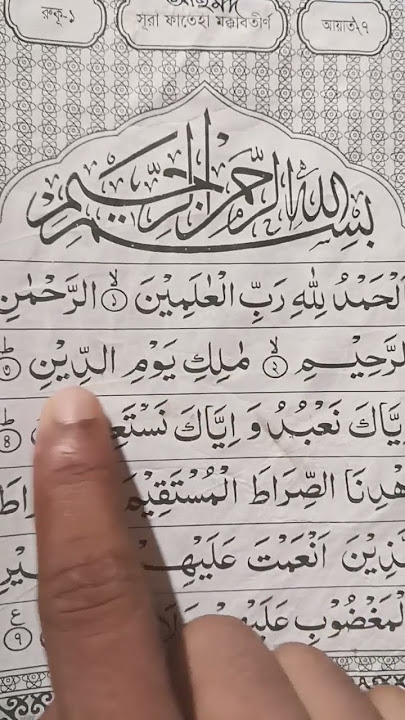 রুকু-১
সূরা ফাতেহা মক্কাবতীর্ণ
আয়াত-৭
بِسْمِ اللهِ الرَّحْمٰنِ الرَّحِيْمِ
اَلْحَمْدُ لِلّٰهِ رَبِّ الْعٰلَمِيْنَ ۙ﴿۱﴾ الرَّحْمٰنِ
الرَّحِيْـمِ ۙ﴿۲﴾ مٰلِكِ يَوْمِ الدِّيْنِ ؕ﴿۳﴾
اِيَّاكَ نَعْبُدُ وَ اِيَّاكَ نَسْتَعِ ؕ﴿۴﴾
هْدِنَا الصِّرَاطَ الْمُسْتَقِيْمَ رَاطَ
لَّذِيْنَ اَنْعَمْتَ عَلَيْهِـ ـيْرِ
الْمَغْضُوْبِ عَلَيْهِمْ وَلَا ع ﴿۹﴾